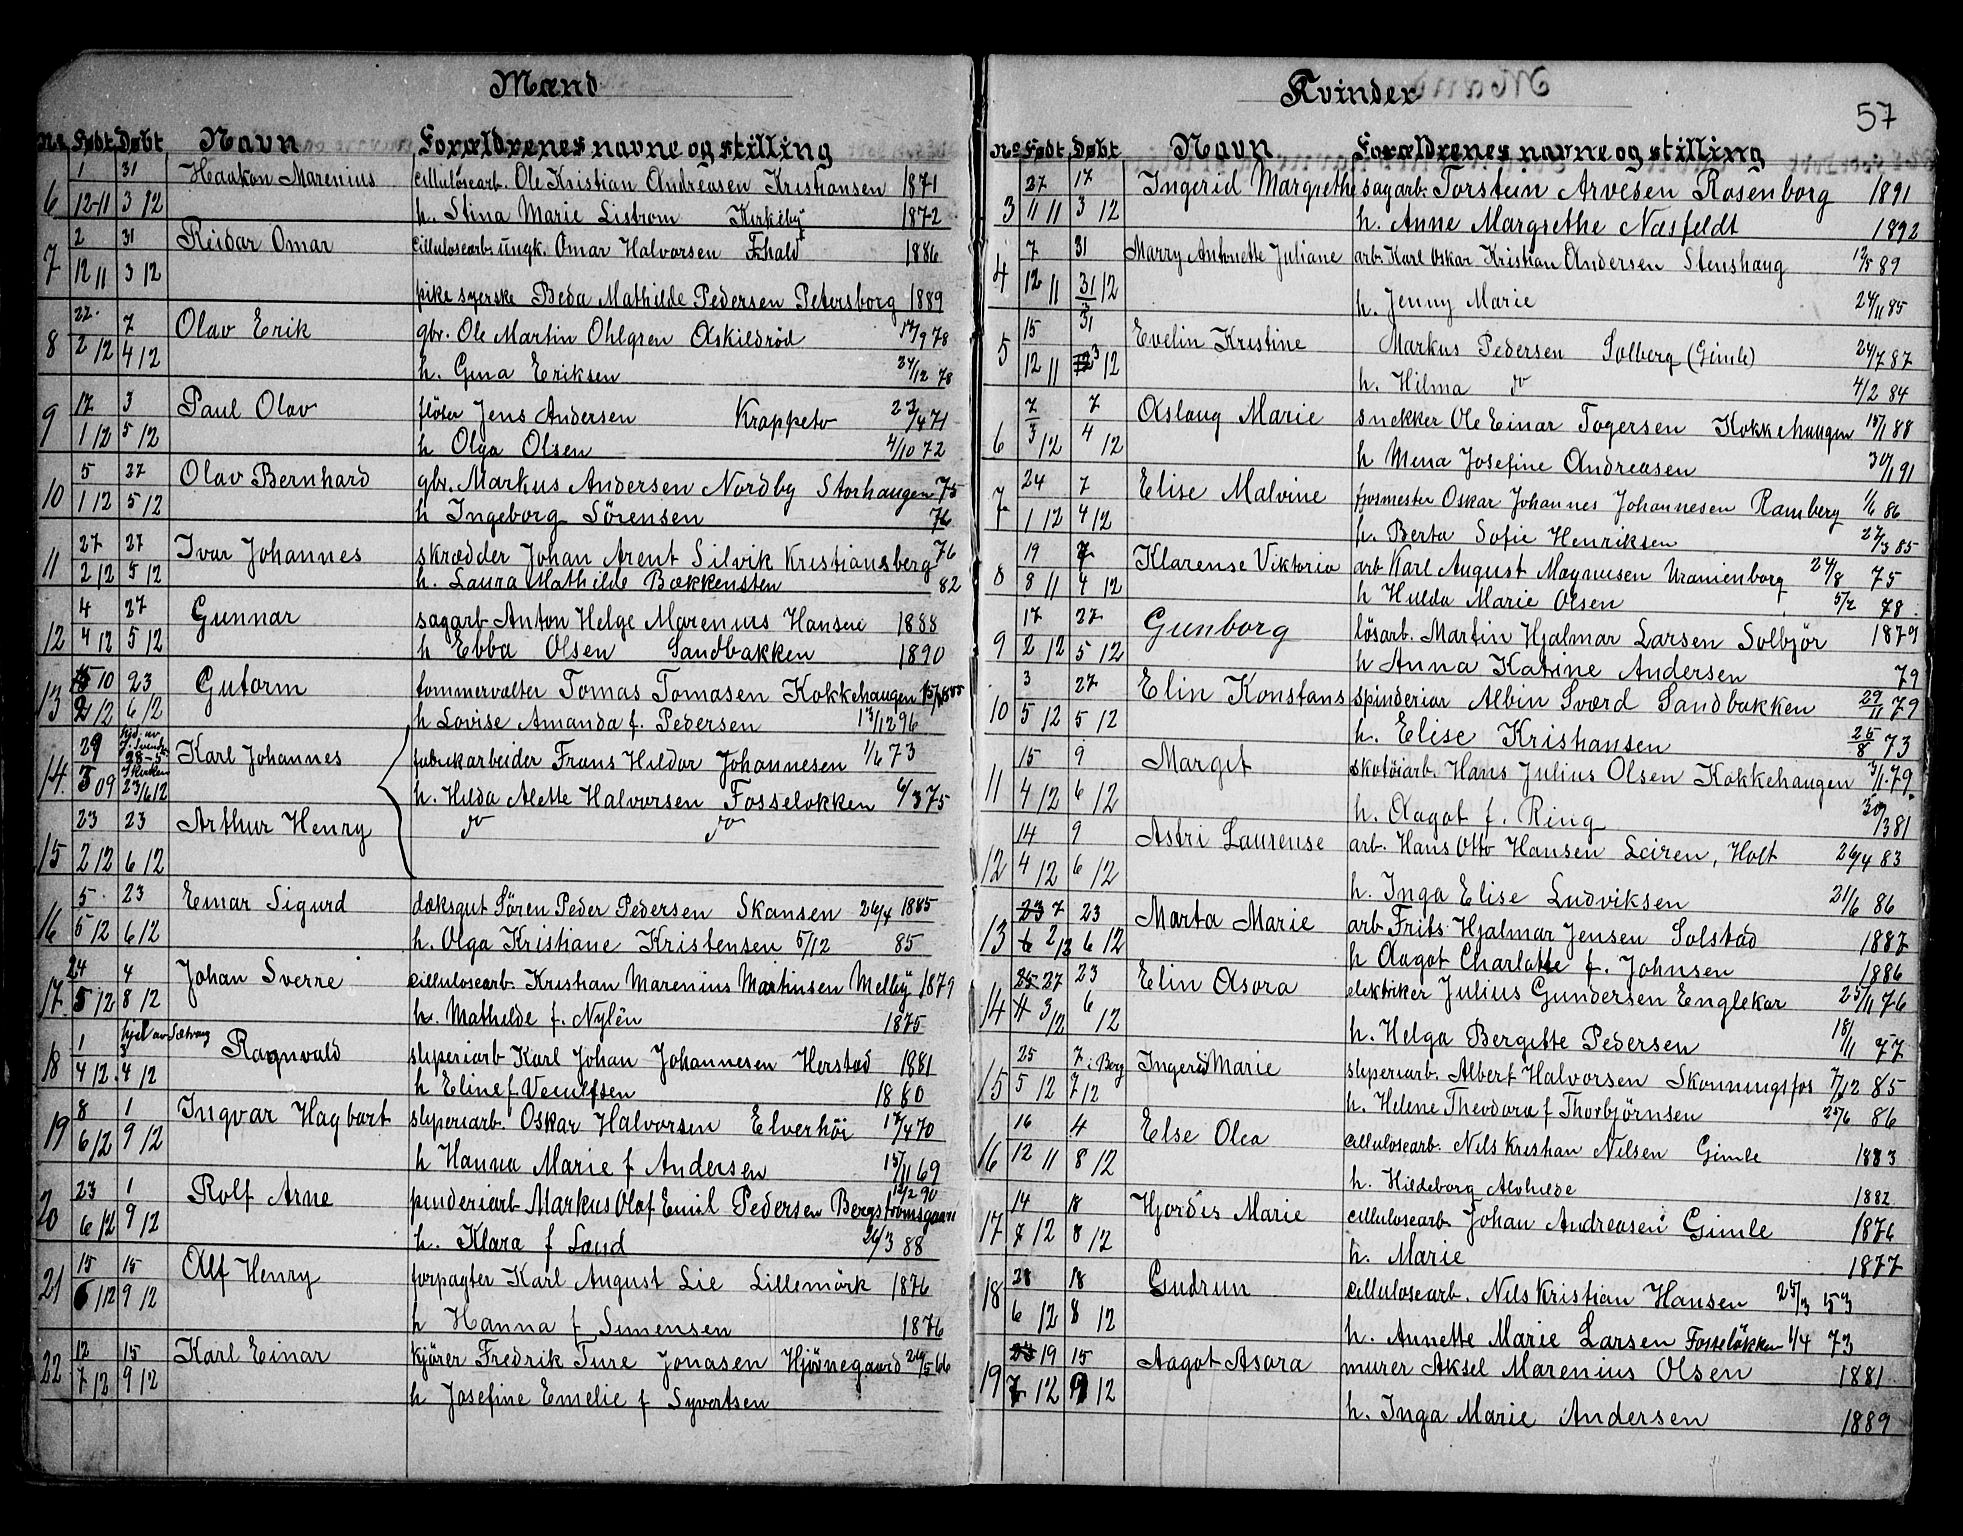 Mænd
No Født Døbt Navn Forældrenes navne og stilling
6 1 12-11 31 3 12 Haakon Marenius cellulosearb. Ole Kristian Andreasen Kristiansen 1871
h. Stina Marie Liström Kirkeby 1872
7 2 12 11 31 3 12 Reidar Omar cellulosearb. ungk. Omar Halvorsen Fhald 1886
pike syerske Beda Mathilde Pedersen Petersborg 1889
8 22 2 12 7 4 12 Olav Erik gbr. Ole Martin Ohlgren Askildröd 17/9 78
h. Gina Eriksen 24/12 78
9 17 1 12 3 5 12 Paul Olav flöter Jens Andersen Krappeto 23/4 71
h Olga Olsen 4/10 72
10 5 1 12 27 5 12 Olav Bernhard gbr. Markus Andersen Nordby Storhaugen 75
h Ingeborg Sörensen 76
11 27 2 12 27 5 12 Ivar Johannes skrædder Johan Arent Silvik Kristiansberg 76
h. Laura Mathilde Bækkensten 82
12 4 4 12 27 5 12 Gunnar sagarb Anton Helge Marenius Hansen 1888
h Ebba Olsen Sandbakken 1890
13 10 2 12 23 6 12 Gutorm tommervælter Tomas Tomasen Kokkehaugen
h Lovise Amanda f. Pedersen 13/12 96
14. 29 3 09 hjd. av 28-5 i kirken 23/6 12 Karl Johannes fabrikarbeider Frans Hildor Johannesen 1/6 73
h. Hilda Alette Halvorsen Fosselökken 6/3 75
15 23 2 12 23 6 12 Arthur Henry do do
16 5 5 12 23 6 12 Einar Sigurd dæksgut Sören Peder Pedersen Skansen 26/4 1885
h. Olga Kristiane Kristensen 5/12 85
17. 24 5 12 4 8 12 Johan Sverre cellulosearb. Kristian Marenius Martinsen Melby 1879
h. Mathilde f. Nylén 1875
18 1 4 12. hjd av Sætrang 3 4 12 Ragnvald sliperiarb Karl Johan Johannesen Horstad 1881
h Eline f. 1880
19 8 6 12 1 9 12 Ingvar Hagbart sliperiarb. Oskar Halvorsen Elverhöi 17/4 70
h Hanna Marie f Andersen 15/11 69
20 23 6 12 1 9 12 Rolf Arne pinderiarb Markus Olaf Emil Pedersen Bergströmsgaarn 12/2 90
h. Klara f Lund 26/3 88
21 15 6 12 15 9 12 Alf Henry forpagter Karl August Lie Lillemörk 1876
h Hanna f Simensen 1876
22 12 7 12 15 9 12 Karl Einar kjörer Fredrik Ture Jonasen Hjörnegaard 26/5 66
h Josefine Emelie f Syvertsen
Kvinder
57
No Født Døbt Navn Forældrenes navne og stilling
3 27 11 11 17 3 12 Ingerid Margrethe sagarb. Torstein Arvesen Rosenborg 1891
h. Anne Margrethe Næsfeldt 1892
4 7 12 11 31 31/3 12 Marry Antonette Juliane arb. Karl Oskar Kristian Andersen Stenshaug 12/5 89
h. Jenny Marie 24/11 85
5 15 12 11 31 3 12 Evelin Kristine Markus Pedersen Solberg (Gimle) 24/7 87
h. Hilma do 4/2 84
6 7 3 12 7 4 12 Aslaug Marie snekker Ole Einar Togersen Kokkehaugen 15/1 88
h Mina Josefine Andreasen 30/1 91
7 24 1 12 7 4 12 Elise Malvine formester Oskar Johannes Johannesen Ramberg 1/6 86
h. Berta Sofie Henriksen 27/3 85
8 19 8 11 7 4 12 Klarense Viktoria arb Karl August Magnusen Uranienborg 24/8 75
h Hulda Marie Olsen 5/2 78.
9 17 2 12 27 5 12 Gunborg lösarb. Martin Hjalmar Larsen Solbjör 1879
h Anna Katrine Andersen 79
10 3 5 12 27 5 12 Elin Konstans spinderiar Albin Sværd Sandbakken 29/11 79
h. Elise Kristiansen 25/8 73
11 15 4 12 9 6 12 Margit skotöiarb. Hans Julius Olsen Kokkehaugen 3/1.79.
h. Aagot f. Ring 30/3 81
12 14 4 12 9 6 12 Astri Laurense arb. Hans Otto Hansen Leiren, Holt 26/4 83
h. Inga Elise Ludviksen 21/6 86
13 23 7 6 2 12 23 6 12 Marta Marie arb Frits Hjalmar Jensen Solstad 1887
h Aagot Charlotte f. Johnsen 1886
14 25 27 4 3 12 23 6 12 Elin Asora elektriker Julius Gundersen Englekor 25/11 76
h. Helga Bergitte Pedersen 18/11 77
15 25 5 12 7. Berg 7 12 Ingerid Marie sliperiarb. Albert Halvorsen Skonningsfos 7/12 85
h. Helene Theodora f Thorbjørnsen 25/6 86
16 16 12 11 4 8 12 Else Olea cellulosearb. Nils Kristian Nilsen Gimle 1883
h. Hildeborg Alvhilde 1882
17 14 8 12 18 8 12 Hjordis Marie cellulosearb. Johan Andreasen Gimle 1876
h. Marie 1877
18 28 6 12 18 8 12 Gudrun cellulosearb. Nils Kristian Hansen 25/3 53
h. Annette Marie Larsen Fosselökken 1/4 73
19 23 19 7 12 15 9 12 Aagot Asora murer Aksel Marenius Olsen 1881
h. Inga Marie Andersen 1889